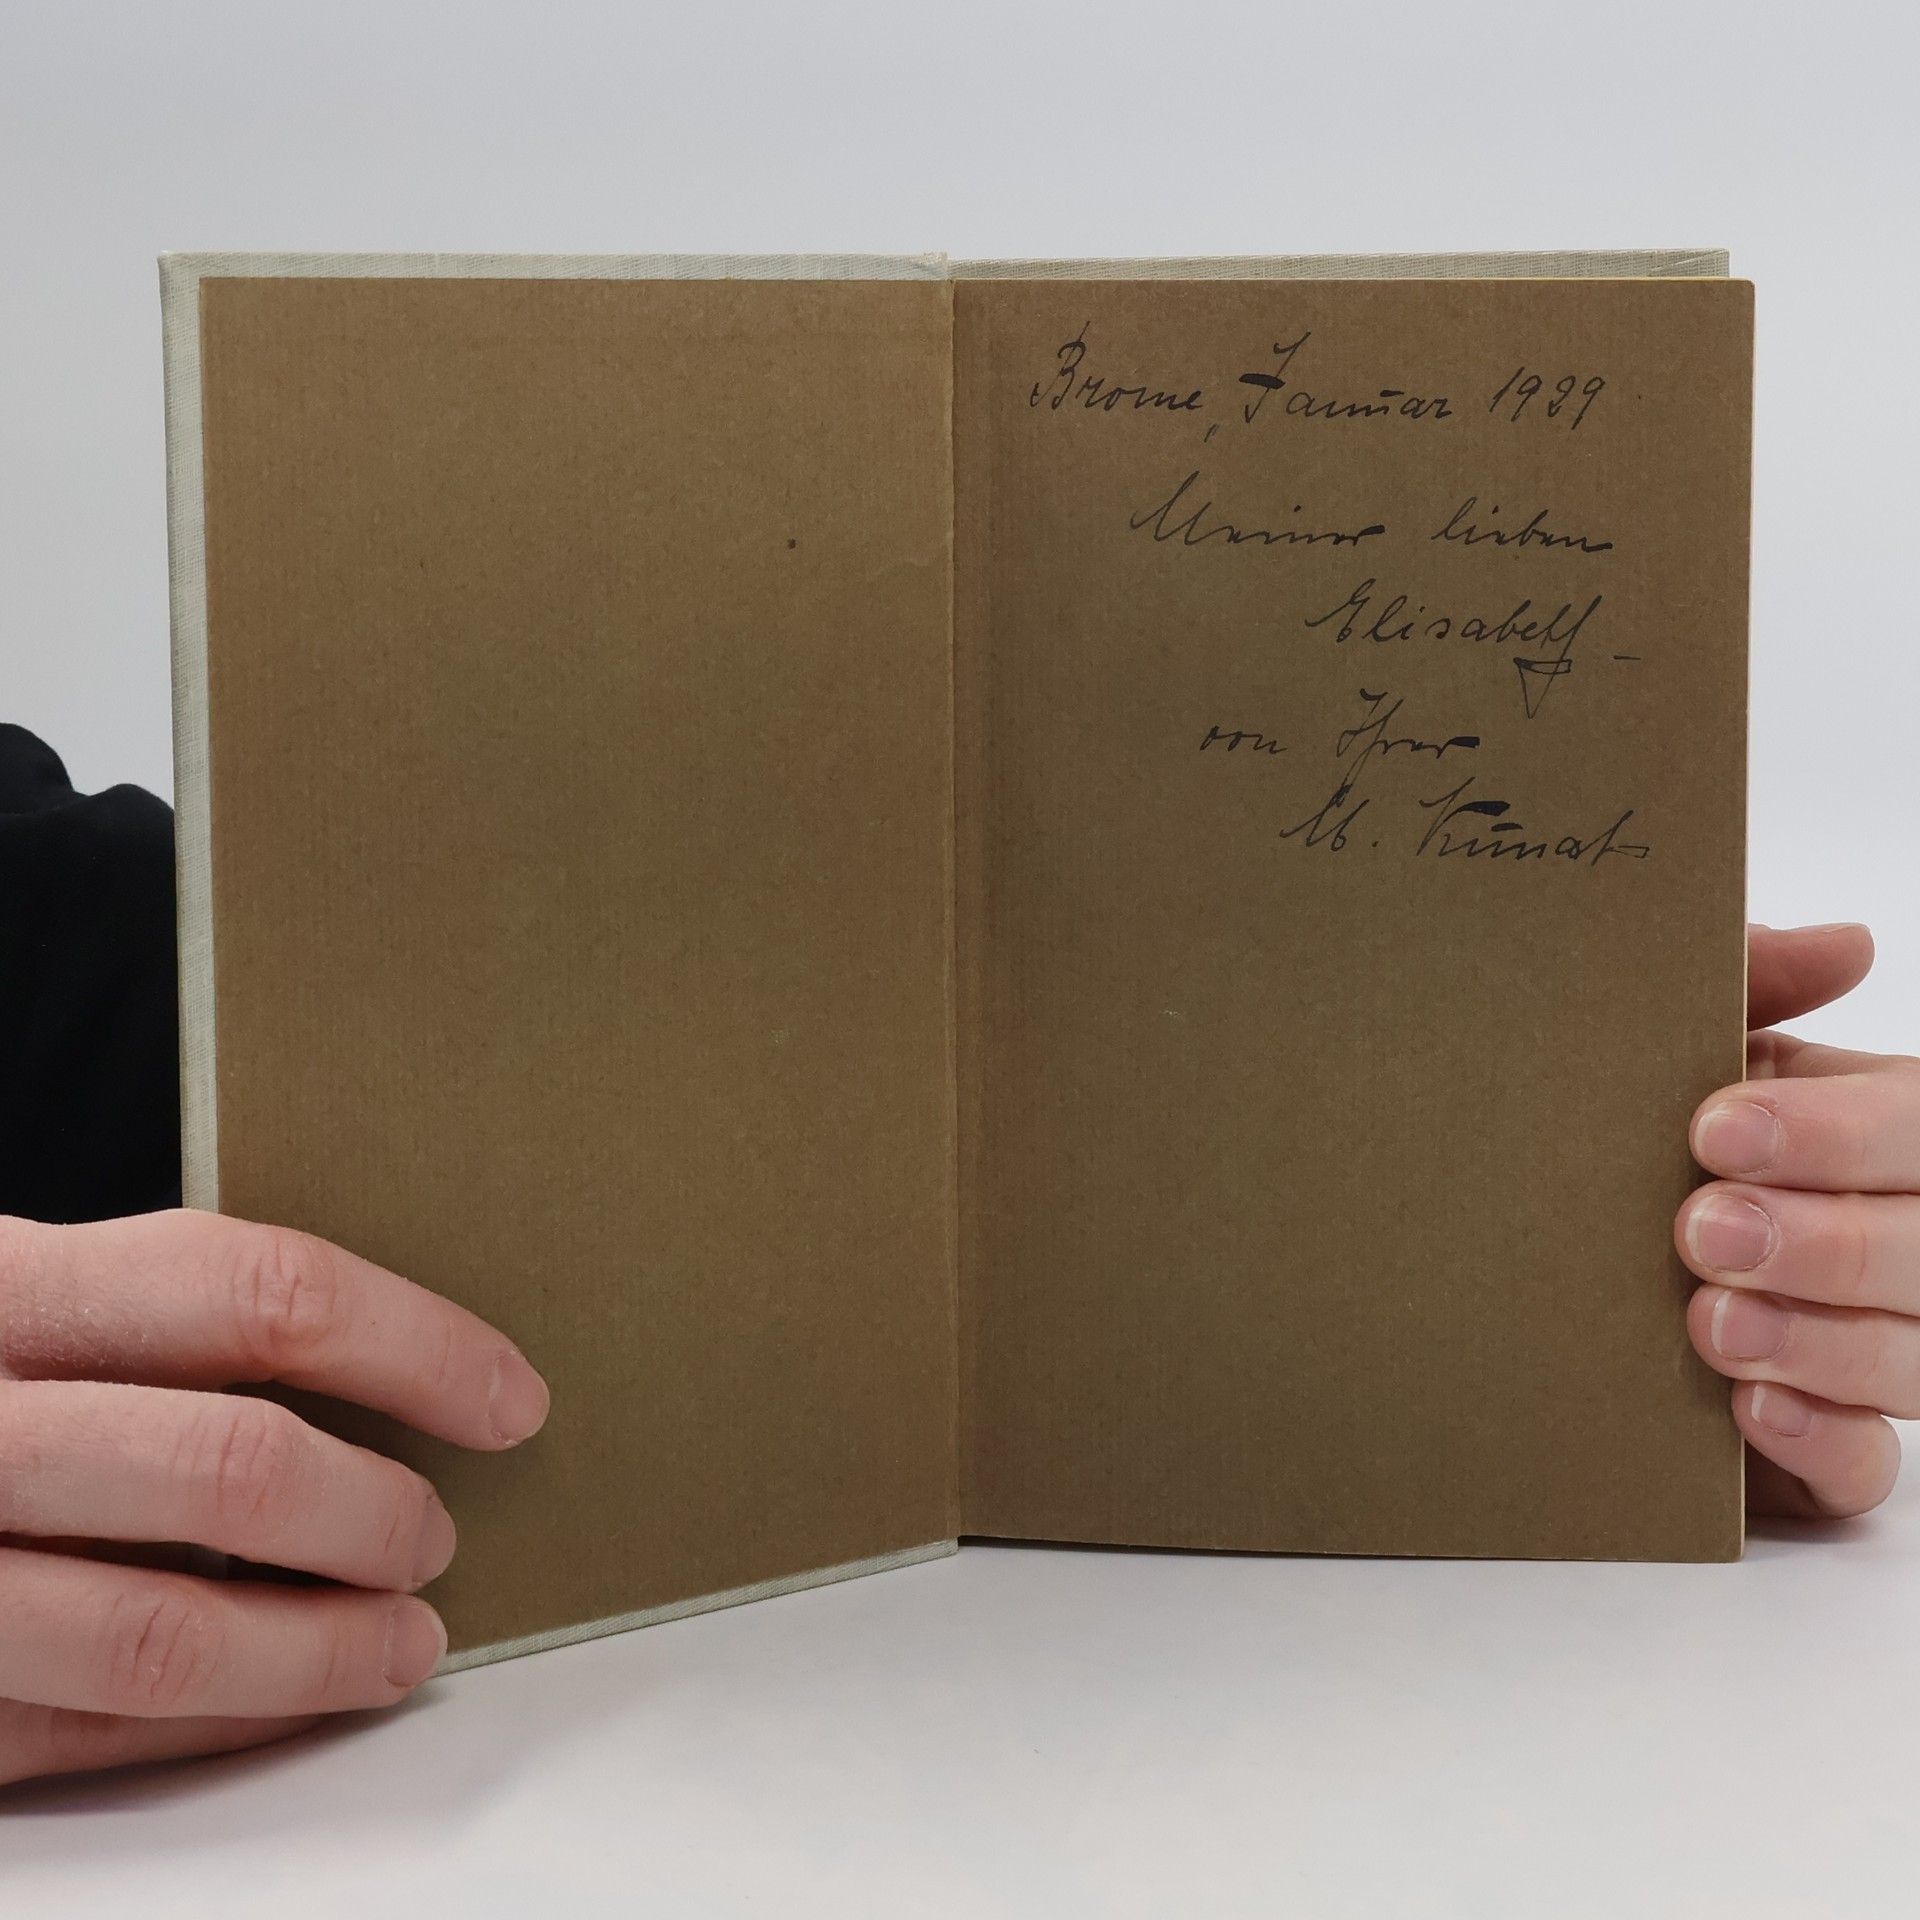 Brome, Januar 1929
Meiner lieben
Elisabeth –
von Ihrer
M. Kunat